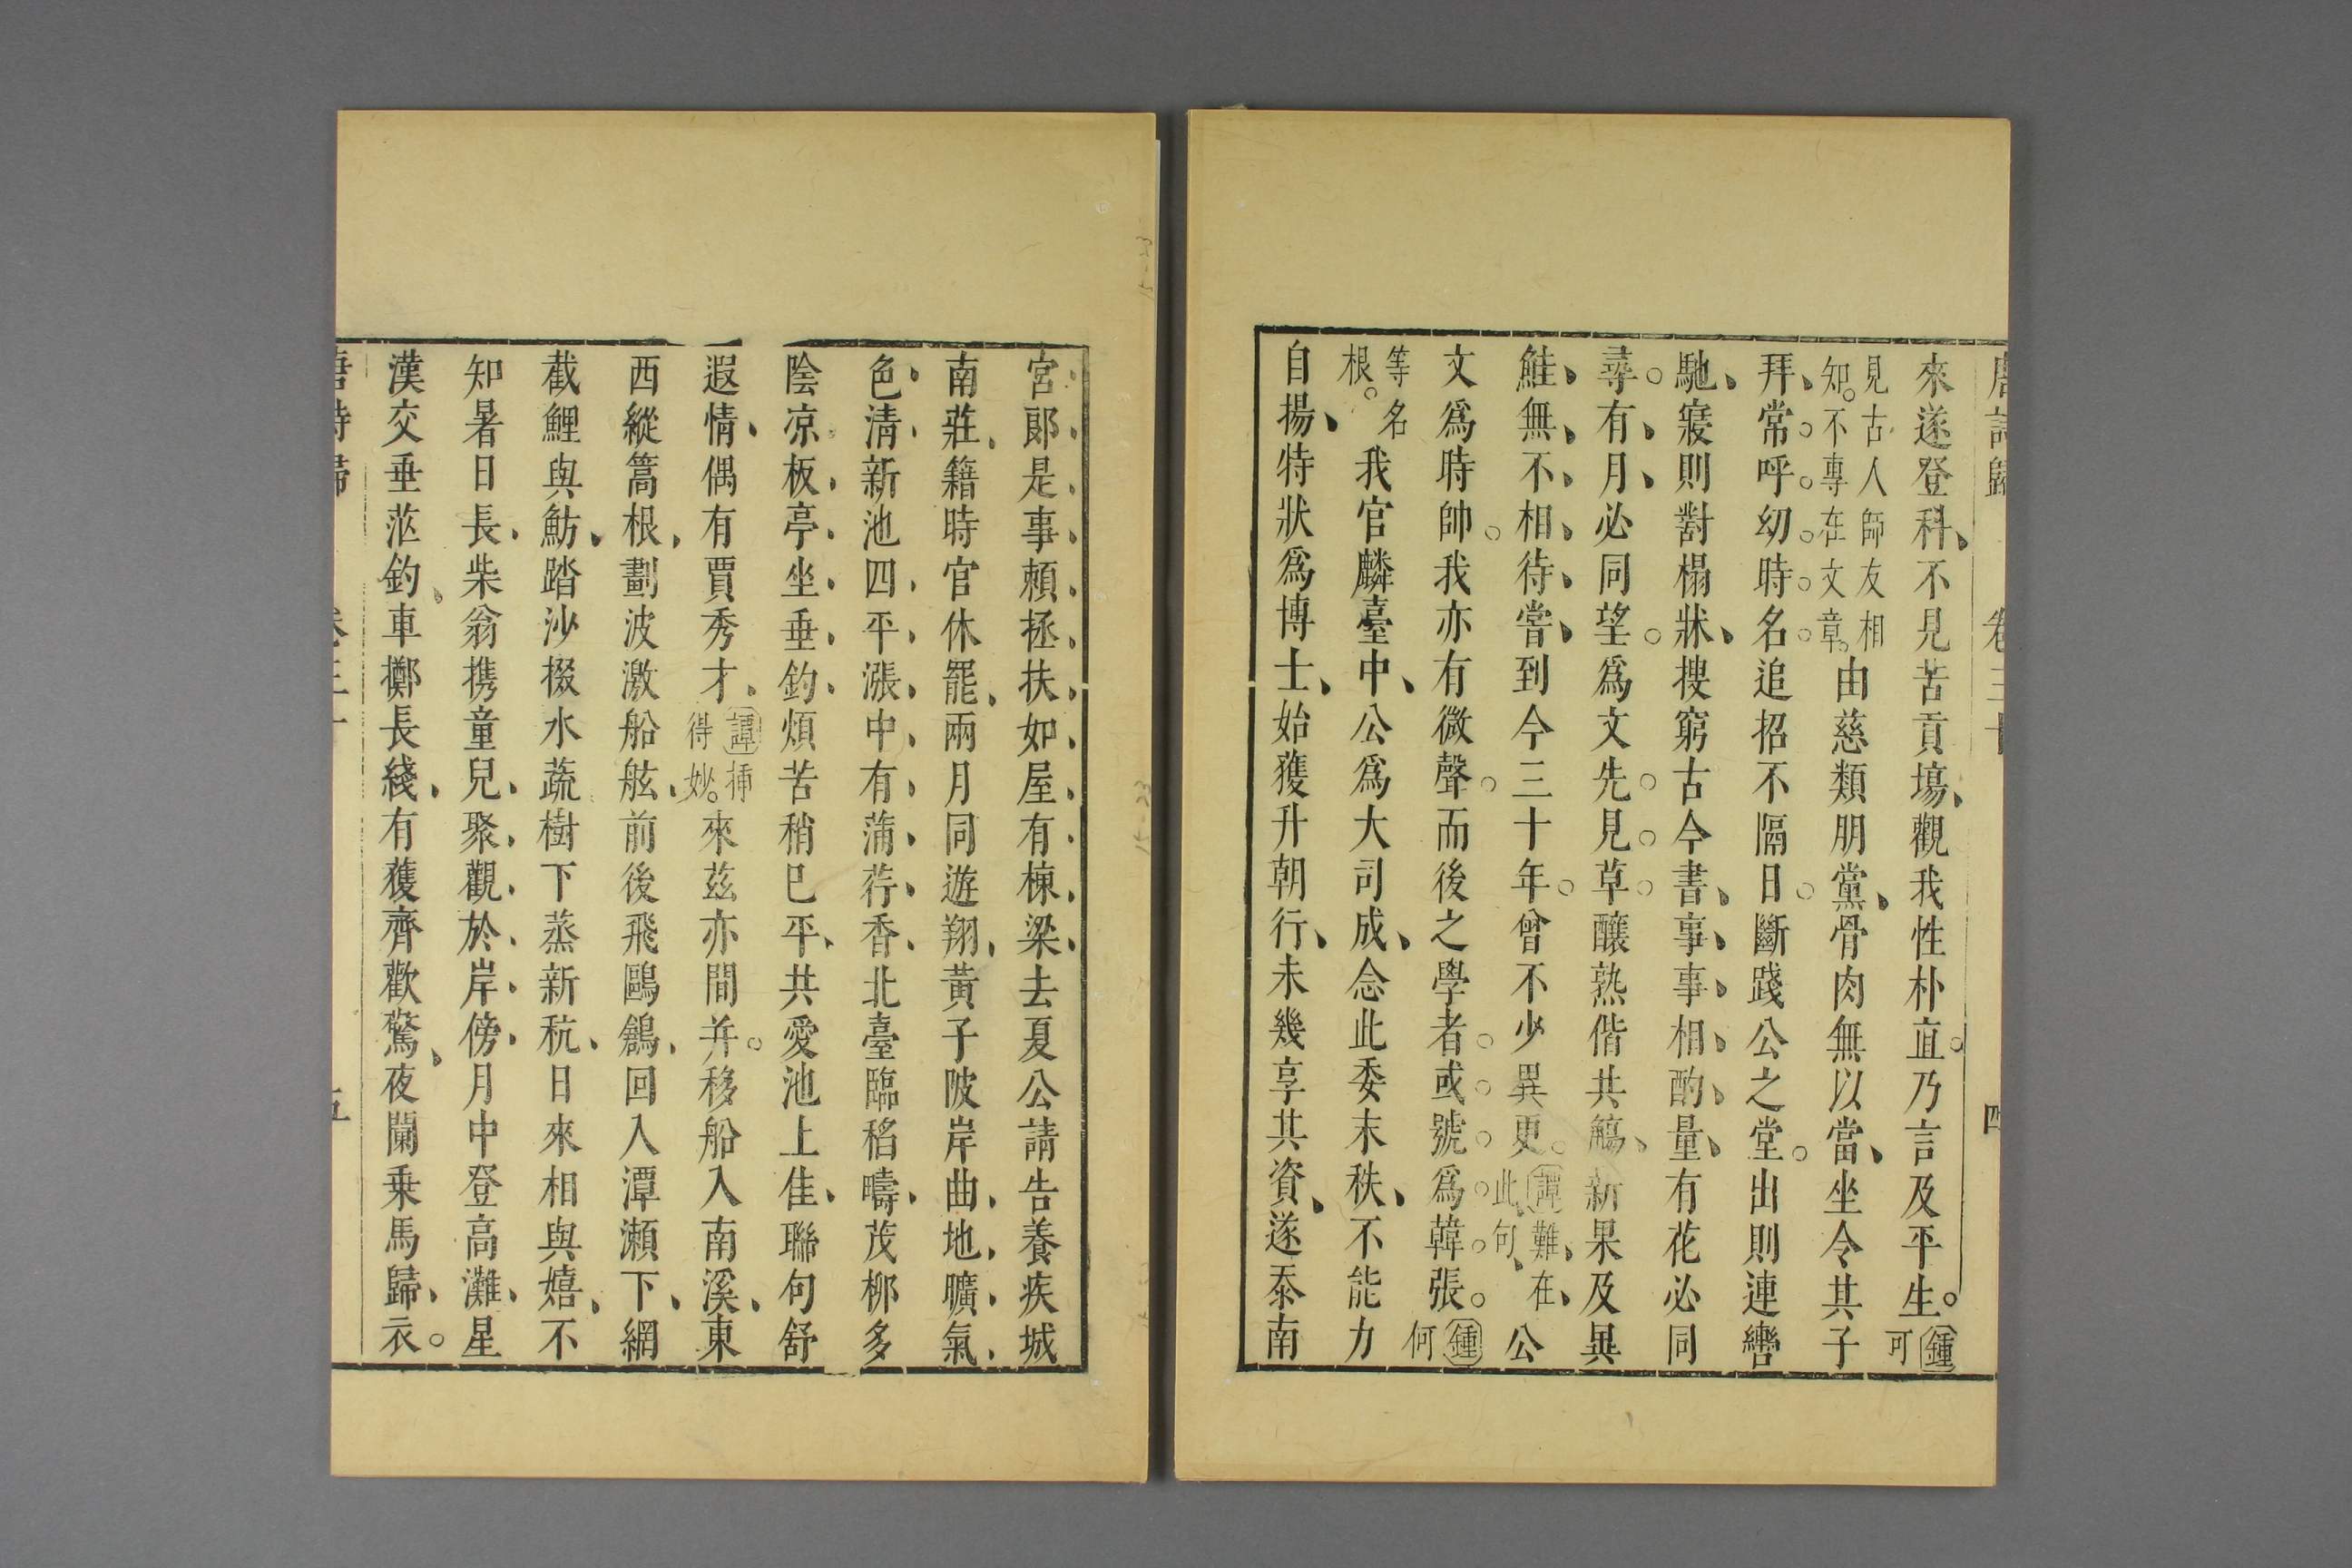 唐詩歸 卷三十 四
來遂登科不見苦貢場觀我性朴直乃言及平生鍾可
見古人師友相知不專在文章由慈類朋黨骨肉無以當坐令其子
拜常呼幼時名追招不隔日斷踐公之堂出則連轡
馳寢則對榻牀搜窮古今書事事相酌量有花必同
尋有月必同望爲文先見草釀熟偕共觴新果及異
鮭無不相待嘗到今三十年曾不少異更譚難在此句公
文爲時帥我亦有微聲而後之學者或號爲韓張鍾何
等名根我官麟臺中公爲大司成念此委末秩不能力
自揚特狀爲博士始獲升朝行未幾享其資遂忝南
宮郎是事賴拯扶如屋有棟梁去夏公請告養疾城
南莊籍時官休罷兩月同遊翔黃子陂岸曲地曠氣
色清新池四平漲中有蒲荇香北臺臨稻疇茂柳多
陰凉板亭坐垂釣煩苦稍巳平共愛池上佳聯句舒
遐情偶有賈秀才譚揷得妙來茲亦間并移船入南溪東
西縱篙根劃波激船舷前後飛鷗鶬回入潭瀨下網
截鯉與魴踏沙掇水蔬樹下蒸新秔日來相與嬉不
知暑日長柴翁携童兒聚觀於岸傍月中登高灘星
漢交垂茫釣車擲長綫有獲齊歡驚夜闌乗馬歸衣
唐詩歸 卷三十 五